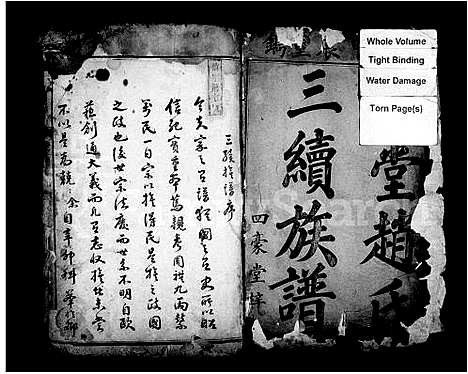 Whole Volume
Tight Binding
Water Damage
Torn Page(s)
堂趙氏
三續族譜
四豪堂梓
三續族譜序
今夫家之有譜猶國之有史所以昭
信紀實重本篤親考周禮九兩繫
萬民一曰宗以族得民是族之政國
之政也後世宗法廢而世系不明自歐
蘇創通大義而凡有志收族者
不以是為兢余自辛卯科